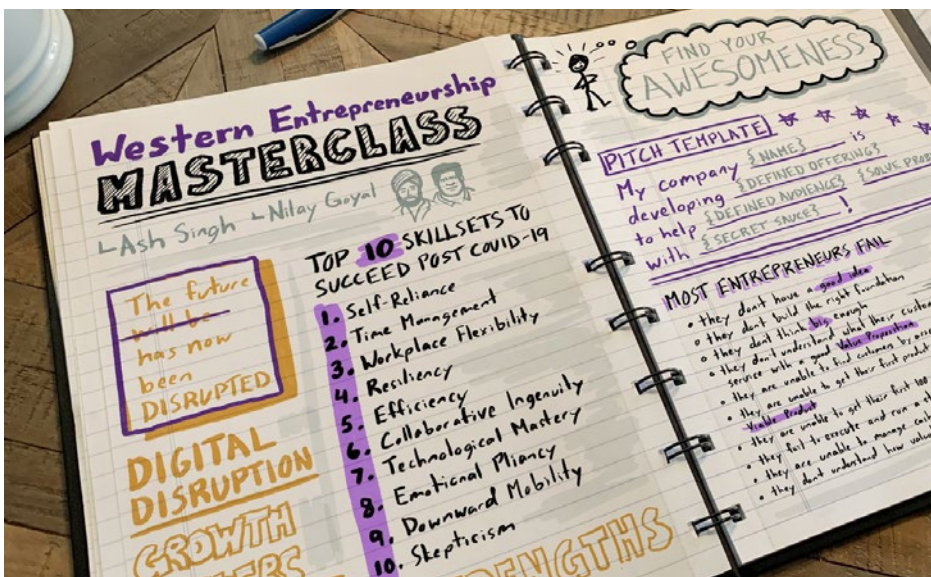 Western Entrepreneurship
MASTERCLASS
Ash Singh Nitay Goyal
The future
will be
has now
been
DISRUPTED
DIGITAL
DISRUPTION
GROWTH
TOP 10 SKILLSETS TO
SUCCEED POST COVID-19
1. Self-Reliance
2. Time Management
3. Workplace Flexibility
4. Resiliency
5. Efficiency
6. Collaborative Ingenuity
7. Technological Mastery
8. Emotional Pliancy
9. Downward Mobility
10. Skepticism
FIND YOUR
AWESOMENESS
PITCH TEMPLATE
My company {NAME} is
developing {DEFINED OFFERING}
to help {DEFINED AUDIENCE} {SOLVE
with {SECRET SAUCE} !
MOST ENTREPRENEURS FAIL
• they don't have a good idea
• they dont build the right foundation
• they dont think big enough
• they don't understand what their
service with a good Value Proposition
• they are unable to find customers by
• they are unable to get their first product
Viable Product
• they are unable to get their first 100
• they fail to execute and run a
• they are unable to manage
• they dont understand how